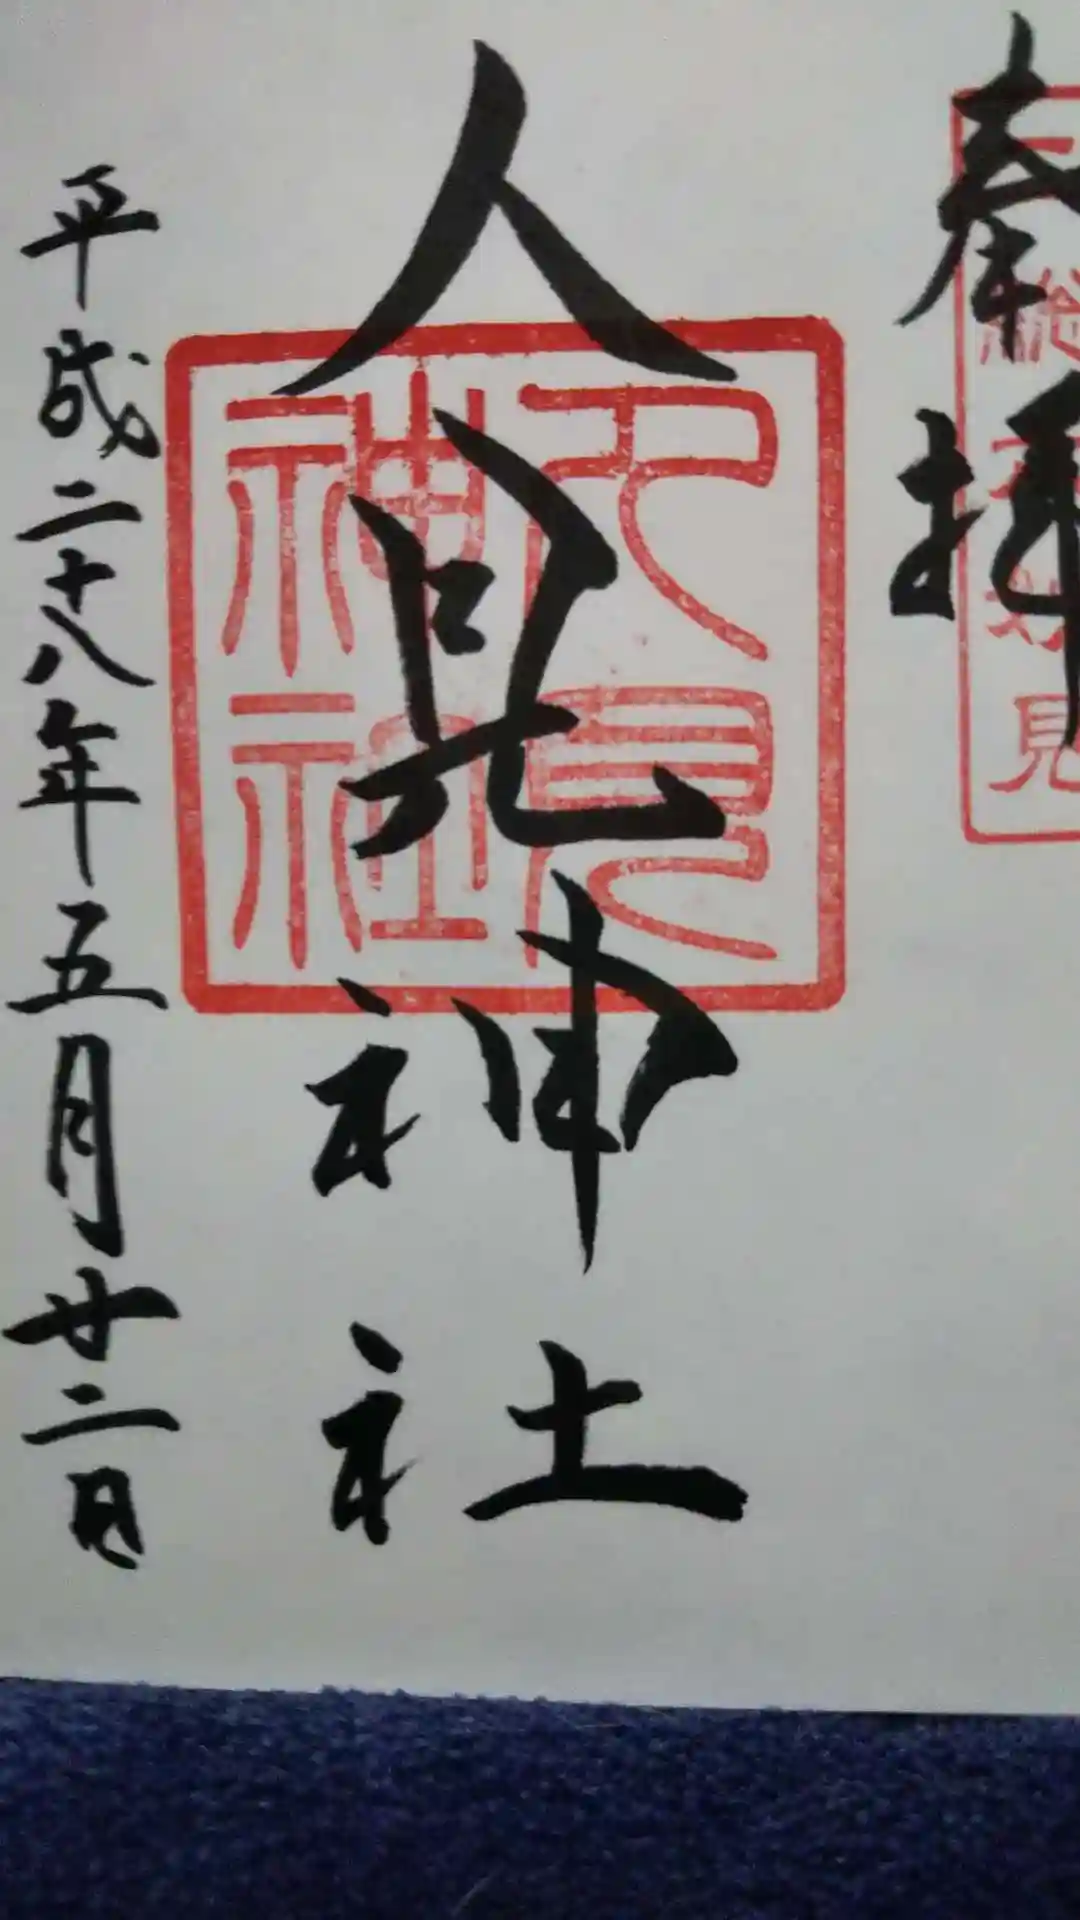 奉拝
総
見
人見神社
人見
神社
平成二十八年五月廿二日